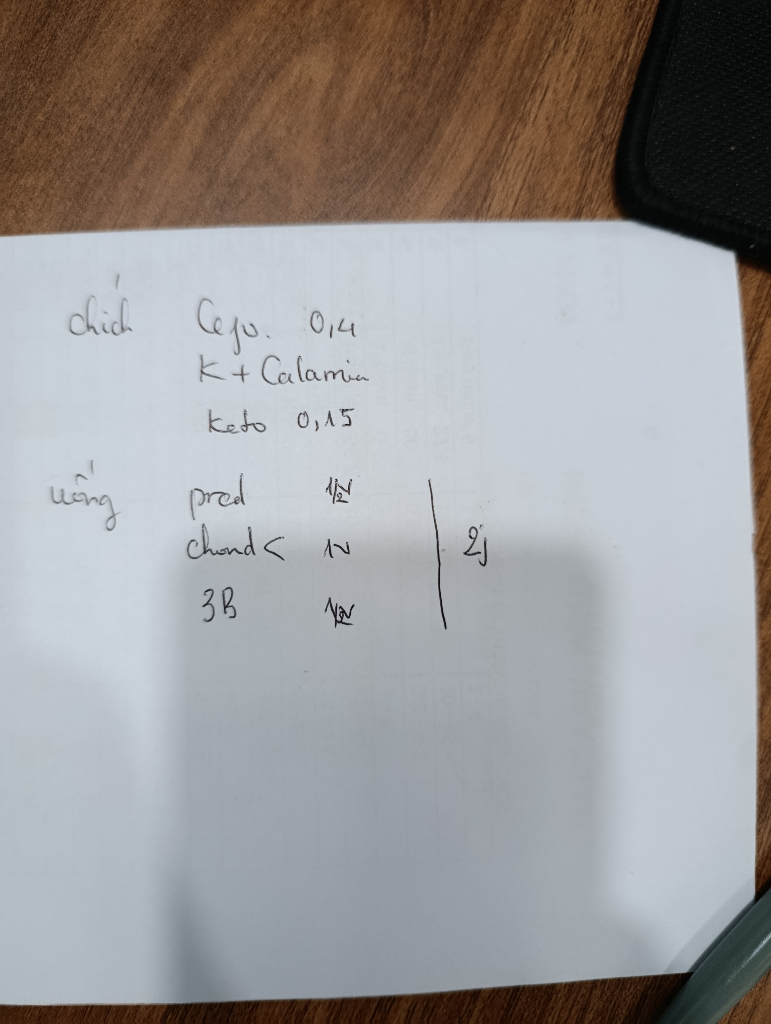 chích Cefo. 0,4
K + Calamin
Keto 0,15
uống pred 1/2v
chond < 1v 2j
3B 1/2v